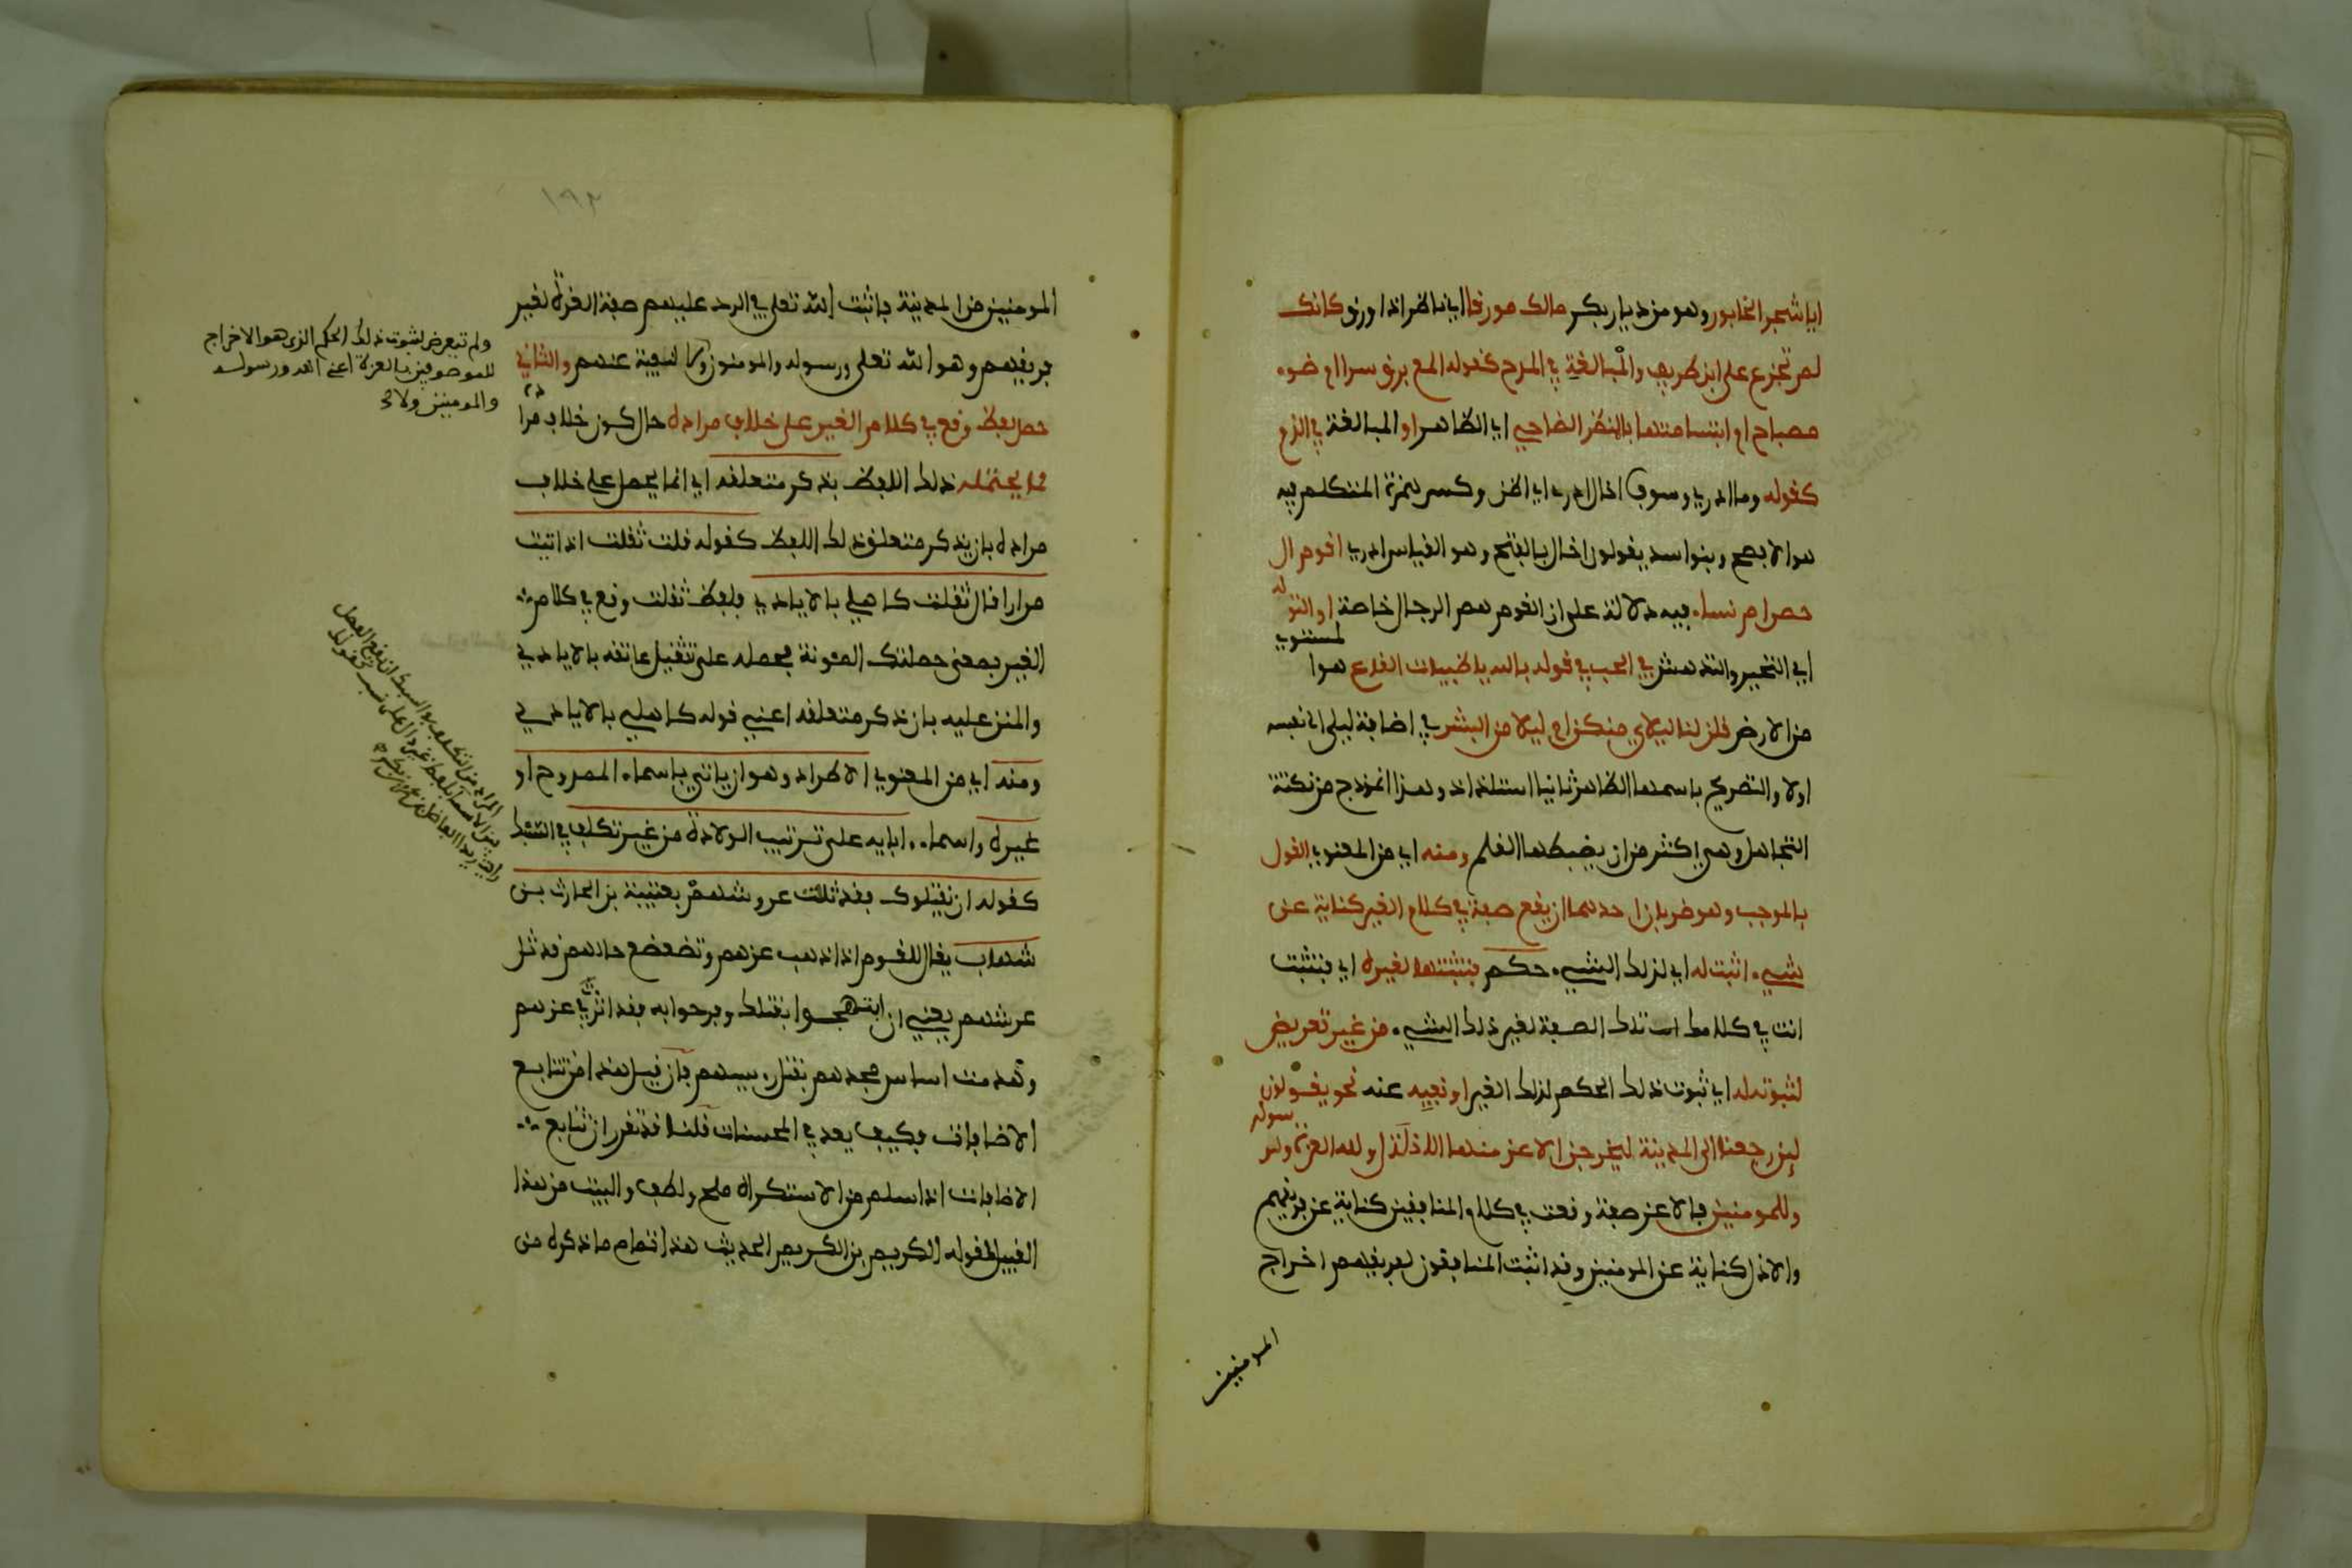 ايا شجر الخابور وهو من ديار بكر مالك مورقا اي ناظرا ذا ورق كانك
لم تجزع على ابن طريف والمبالغة في المدح كقوله المع برق سرا ام ضوء
مصباح ام ابتسامتها بالمنظر الضاحي اي الظاهر او المبالغة في الذم
كقوله وما ادري وسوف اخال ادري اي اظن وكسر همزة المتكلم فيه
هو الافصح وبنو اسد يقولون اخال بالفتح وهو القياس ادري اقوم ال
حصن ام نساء فيه دلالة على ان القوم هم الرجال خاصة او التو
له
اي التحير والتدهش في الحب في قوله بالله يا ظبيات القاع هوا
لمستوي
من الارض قلن لنا ليلاي منكن ام ليلا من البشر في اضافة ليلى الى نفسه
اولا والتصريح باسمها الظاهر ثانيا استلذاذ وهذا انموذج من نكتة
التجاهل وهي اكثر من ان يضبطها القلم ومنه اي من المعنوي القول
بالموجب وهو ضربان احدهما ان يقع صفة في كلام الغير كناية عن
شيء اثبت له اي لذلك الشيء حكم فتثبتها لغيره اي فتثبت
انت في كلامك تلك الصفة لغير ذلك الشيء من غير تعريض
لثبوته له اي ثبوت ذلك الحكم لذلك الغير او نفيه عنه نحو يقولون
لين رجعنا الى المدينة ليخرجن الاعز منها الاذل ولله العزة ولر
سوله
وللمومنين فالاعز صفة وقعت في كلام المنافقين كناية عن فريقهم
والاذل كناية عن المومنين وقد اثبت المنافقون لفريقهم اخراج
المومنين
١٩٢
المومنين من المدينة فاثبت الله تعلى في الرد عليهم صفة العزة لغير
فريقهم وهو الله تعلى ورسوله والمومنون ولا لنفيه عنهم والثاني
حمل لفظ وقع في كلام الغير على خلاف مراده حال كون خلاف مرا
ده
مما يحتمله ذلك اللفظ بذكر متعلقه اي انما يحمل على خلاف
مراده بان يذكر متعلق ذلك اللفظ كقوله قلت ثقلت اذ اتيت
مرارا قال ثقلت كاهلي بالايادي فلفظ ثقلت وقع في كلام
الغير بمعنى حملتك المئونة فحمله على تثقيل عاتقه بالايادي
والمنن عليه بان ذكر متعلقه اعني قوله كاهلي بالايادي
ومنه اي من المعنوي الاطراد وهو ان ياتي باسماء الممدوح او
غيره واسماء ابايه على ترتيب الولادة من غير تكلف في السبك
كقوله ان يقتلوك فقد ثللت عروشهم بعتيبة بن الحارث بن
شهاب يقال للقوم اذا ذهب عزهم وتضعضع حالهم قد ثل
عرشهم يعني ان ابتهجوا بقتلك وفرحوا به فقد اثرت في عزهم
وهدمت اساس مجدهم بقتل رييسهم فان قيل هذا من تتابع
الاضافات فكيف يعد في المحسنات قلنا قد تقرر ان تتابع
الاضافات اذا سلم من الاستكراه ملح ولطف والبيت من هذا
القبيل كقوله الكريم بن الكريم الحديث هذا تمام ما ذكره من
ولم تتعرض لثبوت ذلك الحكم الذي هو الاخراج
للموصوفين بالعزة اعني الله ورسوله
والمومنين ولا
المراد من التكلف في السبك ان يقع الفصل
بين الاسماء بلفظ غير دال على نسب كقولك
رايت زيدا الفاضل بن